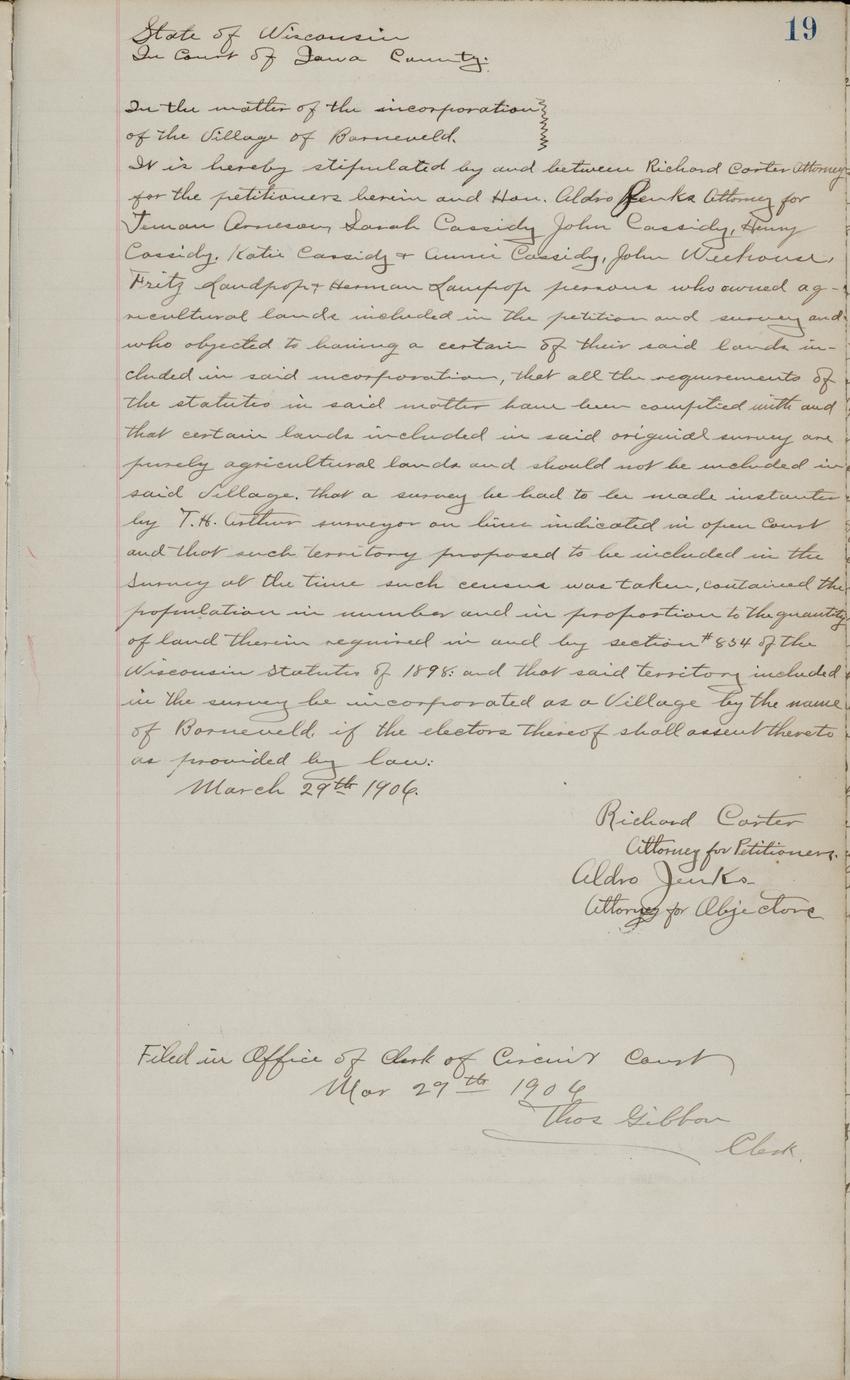 19
State of Wisconsin
In Court of Iowa County:
In the matter of the incorporation
of the Village of Barneveld.
It is hereby stipulated by and between Richard Carter Attorney
for the petitioners herein and Hon. Aldro Jenks Attorney for
Teman Arneson, Sarah Cassidy John Cassidy, Henry
Cassidy. Katie Cassidy & Annie Cassidy, John Weehouse,
Fritz Landpop & Herman Lampop persons who owned ag-
ricultural lands included in the petition and survey and
who objected to having a certain of their said lands in-
cluded in said incorporation, that all the requirements of
the statutes in said matter have been complied with and
that certain lands included in said original survey are
purely agricultural lands and should not be included in
said Village. that a survey be had to be made instanter
by T.H. Arthur surveyor on lines indicated in open Court
and that such territory proposed to be included in the
survey at the time such census was taken, contained the
population in number and in proportion to the quantity
of land therein required in and by section #854 of the
Wisconsin Statutes of 1898: and that said territory included
in the survey be incorporated as a Village by the name
of Barneveld, if the electors thereof shall assent thereto
as provided by law:
March 29th 1906.
Richard Carter
Attorney for Petitioners.
Aldro Jenks
Attorney for Objectors
Filed in Office of Clerk of Circuit Court
Mar 29th 1906
Thos Gibbon
Clerk.